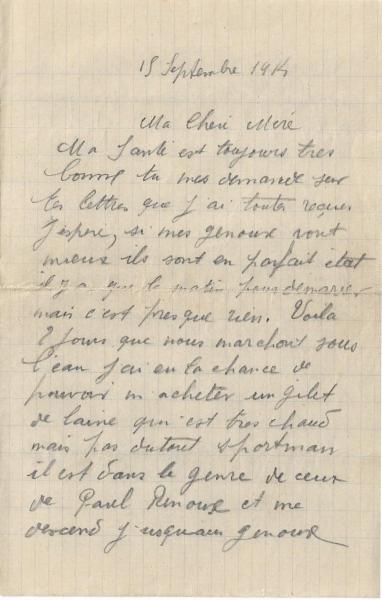 15 Septembre 1914
Ma Cheri Meré
Ma Santé est toujours tres
bonne tu mes demande sur
tes lettres que j'ai toutes reçues
J'espere, si mes genoux vont
mieux ils sont en parfait état
il y a que le matin pour demarer
mais c'est presque rien. Voila
2 jours que nous marchons sous
l'eau j'ai eu la chance de
pouvoir m acheter un gilet
de laine qui est tres chaud
mais pas dutout sportman
il est dans le genre de ceux
de Paul Renoux et me
descend jusquaux genoux